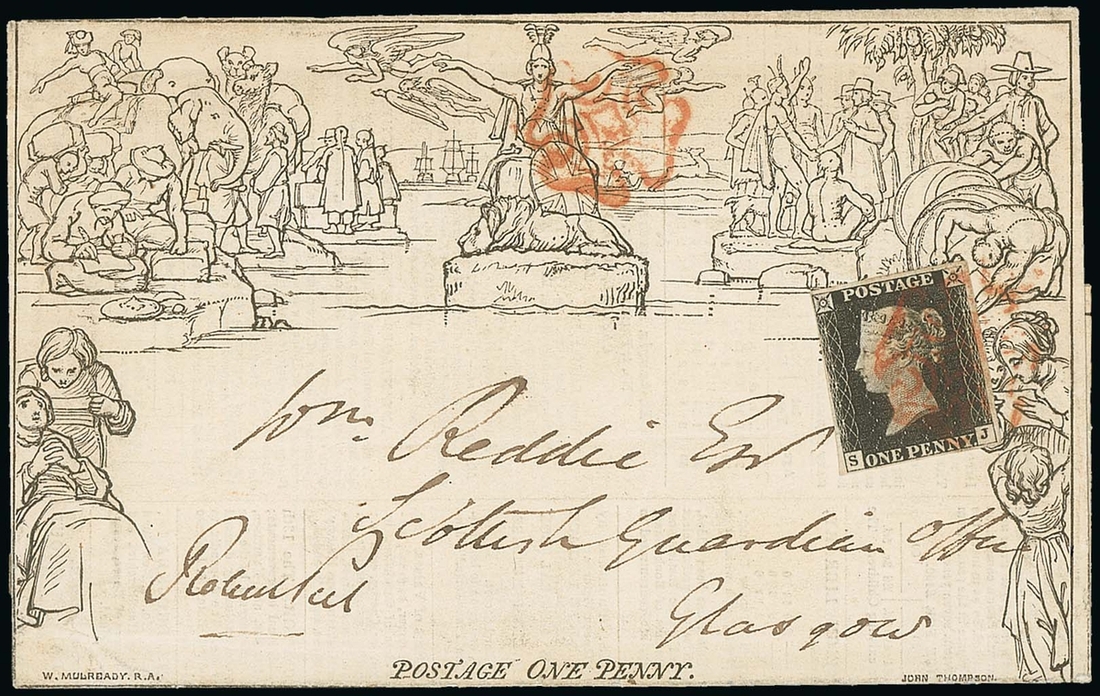 POSTAGE
S ONE PENNY J
Wm. Reddie Esqr
Scottish Guardian Office
Glasgow
Robert Peel
W. MULREADY. R.A.
POSTAGE ONE PENNY.
JOHN THOMPSON.